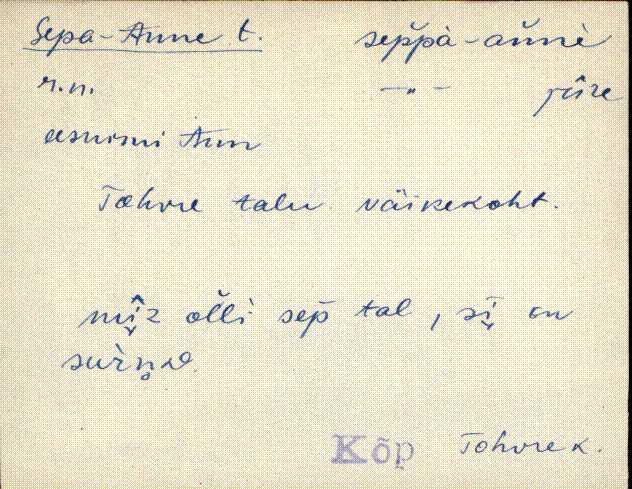 Sepa-Anne t. sep̆pà-ăn̆nè
r.n. —„— jûre
eesnimi Ann
Tohvre talu väikekoht.
mî̬z ol̆li sep̆ tal, sī̬ on
surnd.
Kõp Tohvre k.